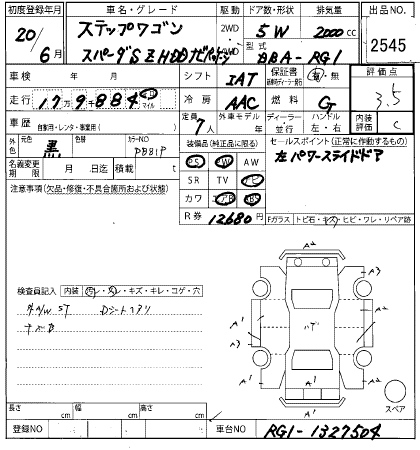 初度登録年月 車名・グレード 駆動 ドア数・形状 排気量 出品NO.
20/6月 ステップワゴン 2WD 5W 2000cc 2545
スパーダSZ HDDナビ 4WD 型式 DBA-RG1
車検 年 月 シフト IAT 保証書 有・無 評価点
走行 17万9千884 マイル 冷房 AAC 燃料 G 3.5
車歴 自家用・レンタ・事業用( ) 定員 7人 外車モデル 年 ディーラー・並行 ハンドル 左・右 内装評価 C
外色 元色 黒 色替 カラーNO 装備品(純正品に限る) セールスポイント(正常に作動するもの)
名義変更期限 月 日迄 積載 t PS PW AW 左パワースライドドア
注意事項(欠品・修復・不具合箇所および状態) SR TV ナビ
カワ エアB ABS
R券 12680円 Fガラス トビ石・キズ・ヒビ・ワレ・リペア跡
検査員記入 内装 汚レ・スレ・キズ・キレ・コゲ・穴
A2
A3
A1
A1
A3
A2
A1
スペア
長さ cm 幅 cm 高さ cm
登録NO 車台NO RG1-1327504